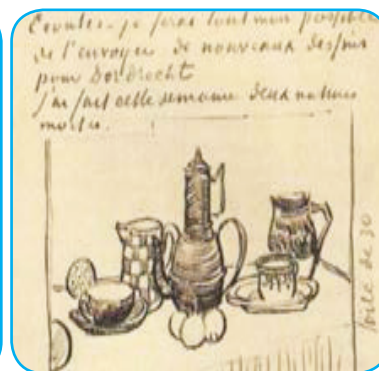 Ecoutes. je ferai tout mon possible
de t'envoyer de nouveaux dessins
pour Dordrecht
j'ai fait cette semaine deux natures
mortes.
toile de 30